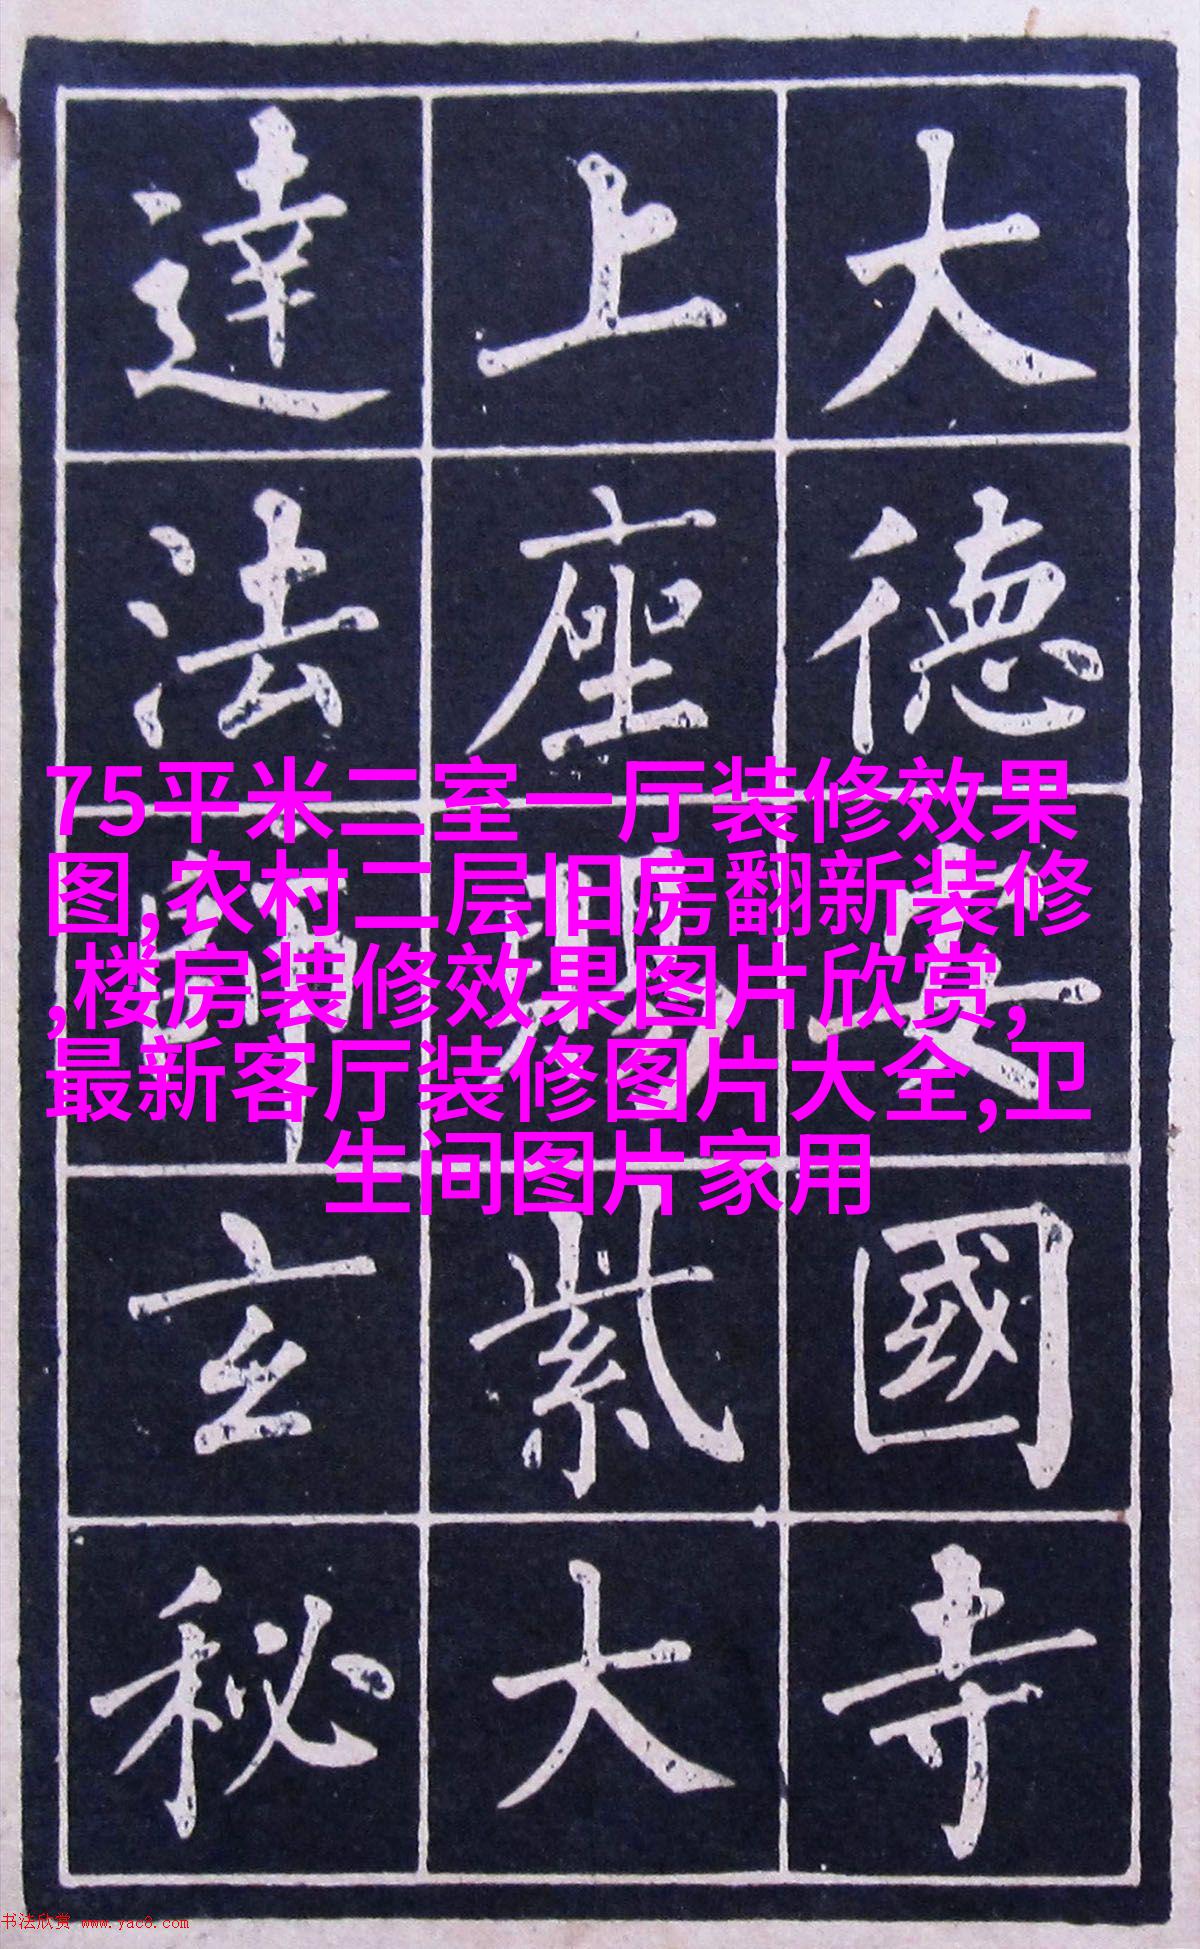 大德安國寺
上座賜紫大
達法師玄秘
75平米二室一厅装修效果
图,农村二层旧房翻新装修
,楼房装修效果图片欣赏,
最新客厅装修图片大全,卫
生间图片家用
书法欣赏 www.yac8.com